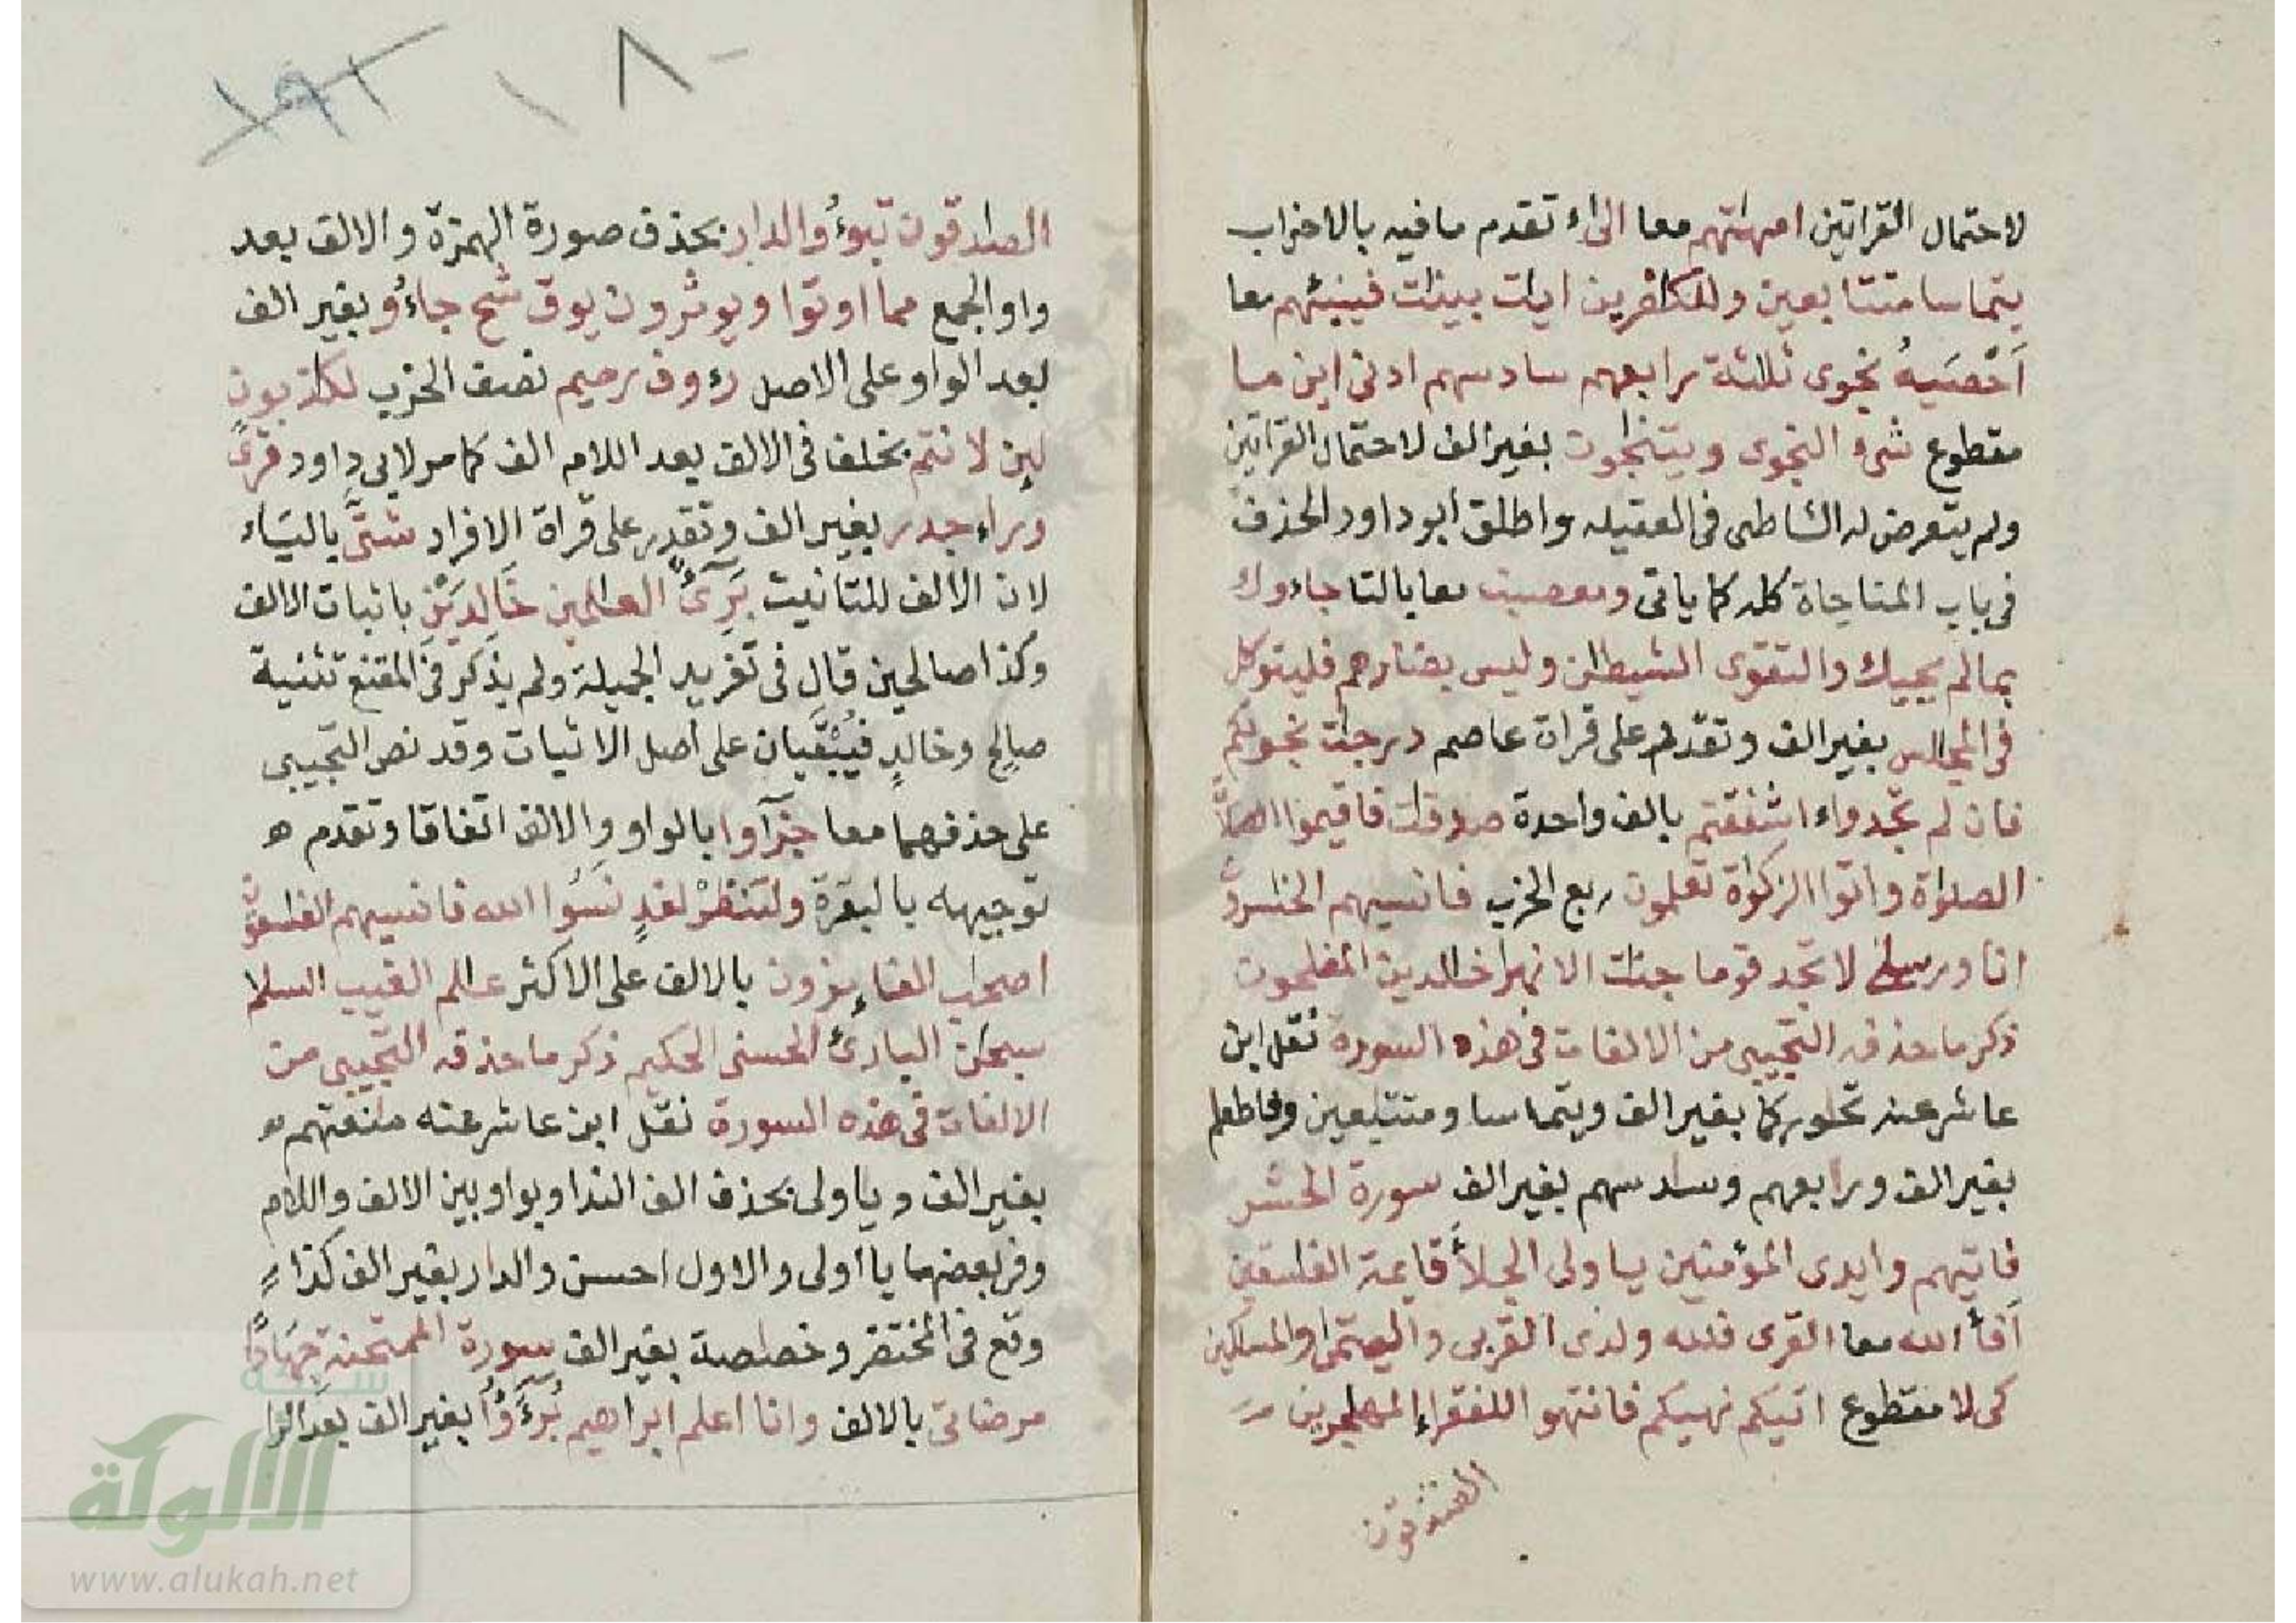 لاحتمال القراتين امهتهم معا الىء تقدم ما فيه بالاحزاب
يتماسا متتابعين وللكفرين ايت بينت فينبئهم معا
اَحْصَيهُ نجوى ثلثة رابعهم سادسهم ادنى اين ما
مقطوع شىء النجوى ويتنجون بغير الف لاحتمال القراتين
ولم يتعرض له الشاطبى فى العقيله واطلق ابو داود الحذف
فى باب المناجاة كله كما ياتى ومعصيت معا بالتا جاءوك
بما لم يحيك والتقوى الشيطن وليس بضارهم فليتوكل
فى المجلس بغير الف وتقدم على قراة عاصم درجت نجوىكم
فان لم تجدواء اشفقتم بالف واحدة صدقت فاقيموا الصلا
الصلوة واتوا الزكوة تعلمون ربع الحزب فانسيهم الخسرون
انا ورسلى لا تجد قوما جنت الانهر خلدين المفلحون
ذكر ما حذفه التجيبى من الالفات فى هذه السورة نقل ابن
عاشر عنه تحوركما بغير الف ويتماسا ومتتبعين وفاطعام
بغير الف ورابعهم وسادسهم بغير الف سورة الحشر
فاتيهم وايدى المؤمنين ياولى الجلأ قايمة الفسقين
اَفأ الله معا القرى فلله ولذى القربى واليتمى والمسكين
كى لا مقطوع اتيكم نهيكم فانتهوا للفقراء المهجرين
الصدقون
الصادقون تبوءُو الدار بحذف صورة الهمزة والالف بعد
واو الجمع مما اوتوا ويوثرون يوق شح جاءُو بغير الف
بعد الواو على الاصل رءوف رحيم نصف الحزب لكذبون
لئن لانتم بخلف فى الالف بعد اللام الف كما مر لابى داود قرى
وراء جدر بغير الف وتقدم على قراة الافراد شتَّى بالياء
لان الالف للتانيث بَرِىءٌ العلمين خَالِدَيْنِ باثبات الالف
وكذا صالحين قال فى تفريد الجميلة ولم يذكر فى المقنع تثنية
صالح وخالد فيُبْقَيان على اصل الاثبات وقد نص التجيبى
على حذفهما معا جزآوا بالواو والالف اتفاقا وتقدم
توجيهه بالبقرة ولتنظرْ لغدٍ نسُوا الله فانسيهم الفسقون
اصحب الفاءيزون بالالف على الاكثر علم الغيب السلم
سبحن البارئ الحسنى الحكيم ذكر ما حذفه التجيبى من
الالفات فى هذه السورة نقل ابن عاشر عنه منعتهم
بغير الف وياولى بحذف الف الندا وبواو بين الالف واللام
وفى بعضها يا اولى والاول احسن والدار بغير الف كذا
وقع فى المختصر وخصاصة بغير الف سورة الممتحنة جِهَادًا
مرضاتى بالالف وانا اعلم ابراهيم بُرَءَؤُا بغير الف بعد الرا
الألوكة
www.alukah.net